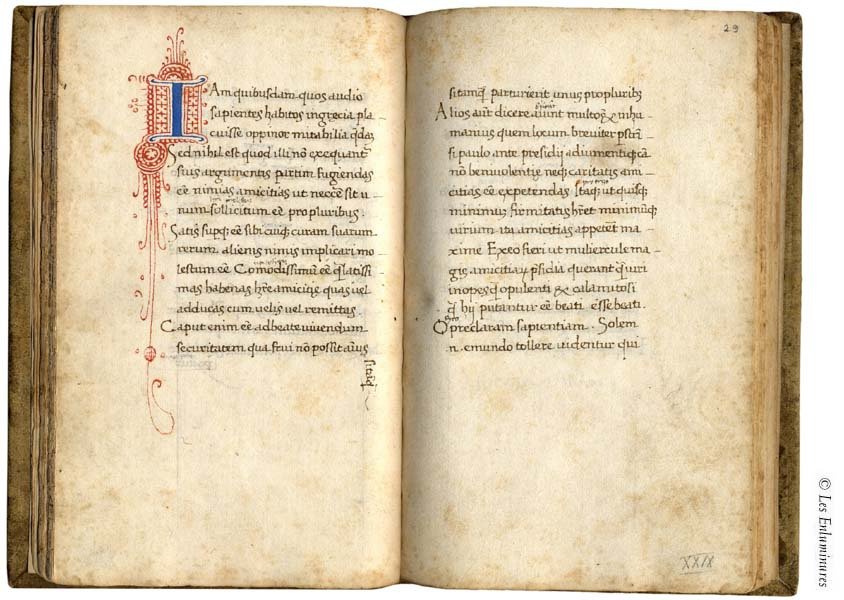 IAm quibusdam quos audio
sapientes habitos ingrecia pla
cuisse oppinor mirabilia q̄daȝ
Sed nihil est quod illi nō exequant᷑
suis argumentis partim fugiendas
eē nimias amicitias ut necēe sit u
num sollicitum eē pro pluribus
Satis suꝑq; eē sibi cuiq; curam suarum
rerum alienis nimis implicari mo
lestum eē Comodissimū eē q̄ laxissi
mas habenas hr̄e amicitiȩ quas uel
adducas cum uelis uel remittas
Caput enim eē ad beate uiuendum
securitatem qua frui nō possit aīus
29
sitamq̄ parturierit unus pro pluribȝ
Alios aūt dicere aiunt multoq; & inhu
manius quem locum breuiter pstrī
si paulo ante presidij adiumentiq; cā
nō beniuolentiȩ neq; caritatis ami
citias eē expetendas Itaq; ut quisq;
minimum firmitatis hr̄et minimūq;
uirium ita amicitias appetēt ma
xime Ex eo fieri ut mulierculȩ ma
gis amicitiaꝝ p̄sidia querant q̄ uiri
inopes q̄ opulenti & calamitosi
q̄ hij putantur eē beati Esse beati.
O preclaram sapientiam. Solem
n. e mundo tollere uidentur qui
XXIX
© Les Enluminures